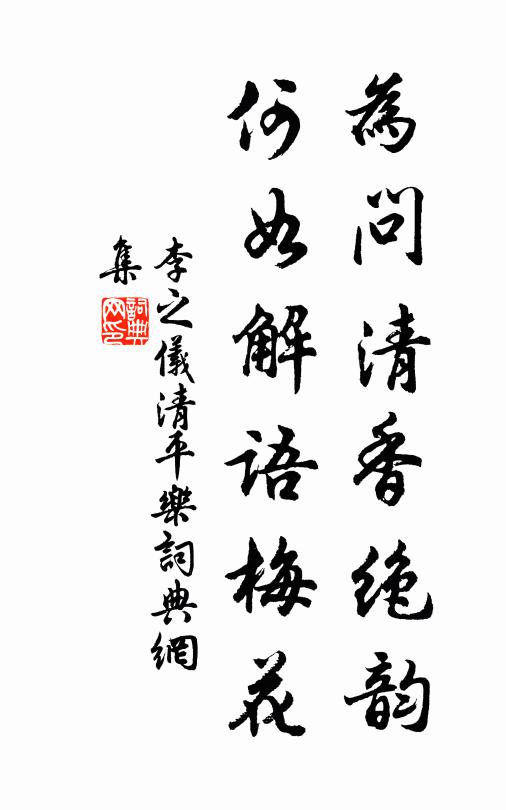 為问清香绝韵
何如解语梅花
李之儀清平樂詞典網
集
詞典
网印